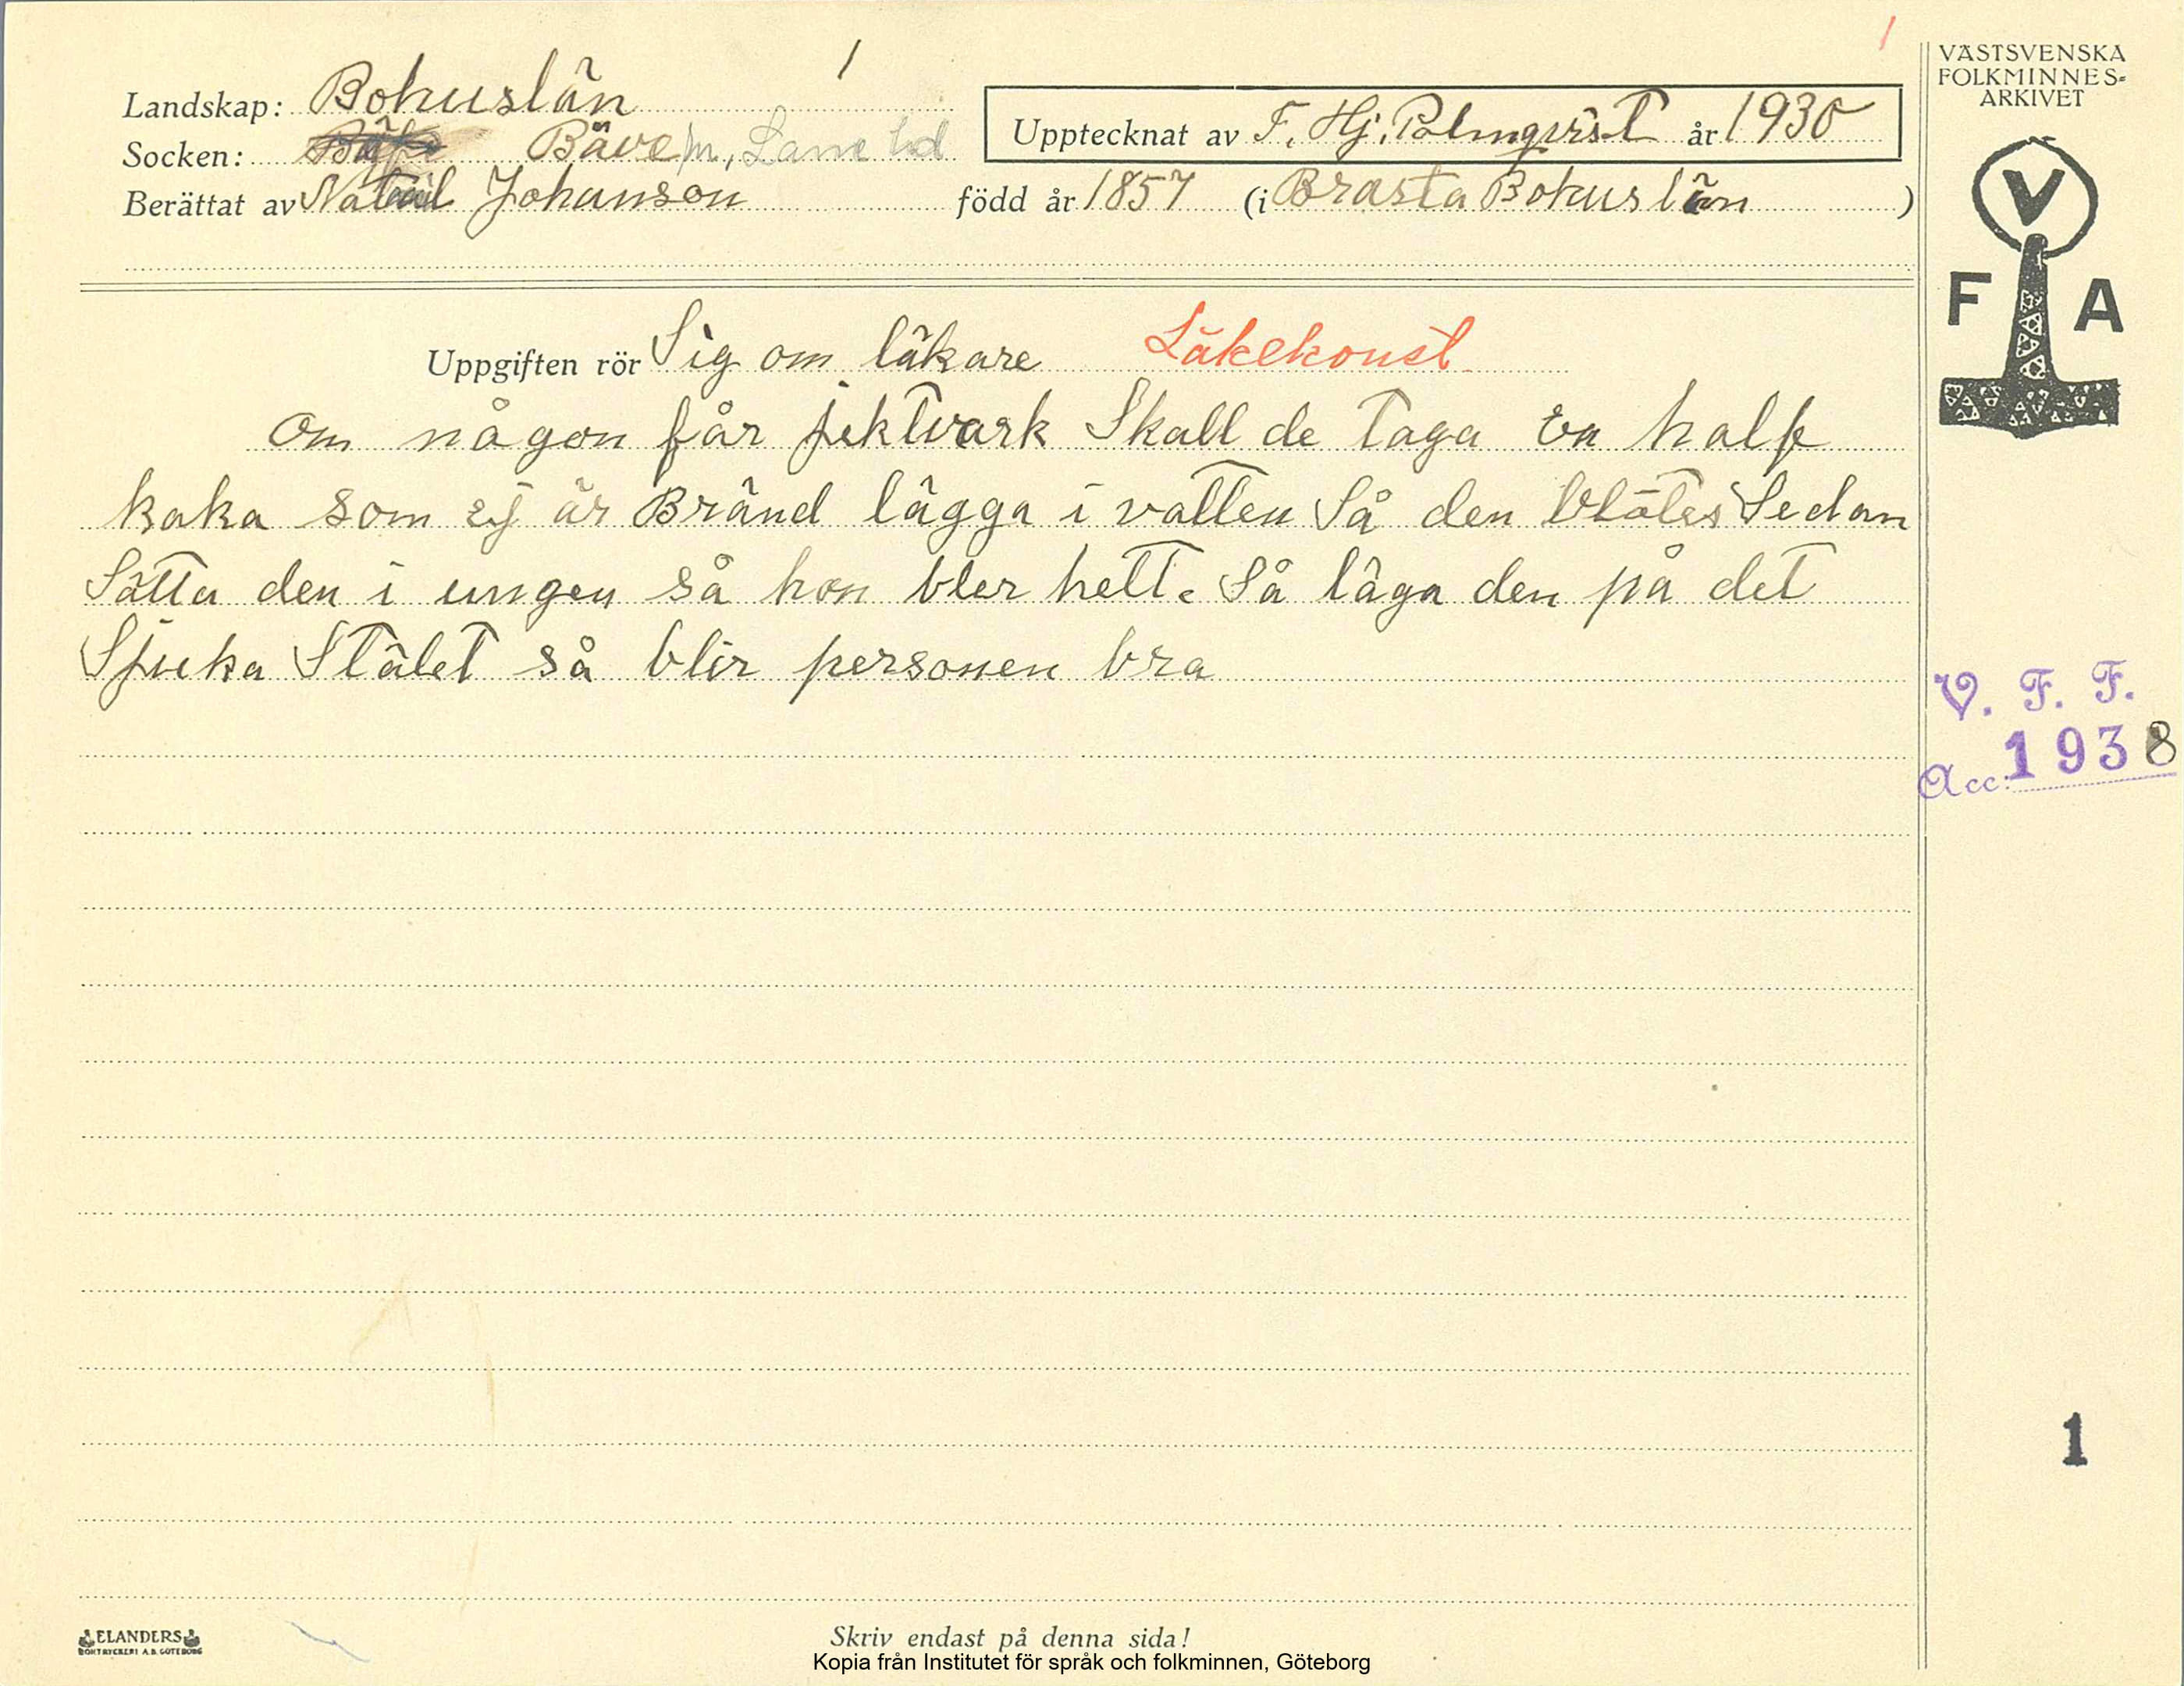 1
1
VÄSTSVENSKA
FOLKMINNES-
ARKIVET
Landskap: Bohuslän
Upptecknat av F. Hj. Palmqvist år 1930
Socken: Bäve sn, Lane hd
Berättat av Johanson född år 1857 (i Brasta Bohuslän )
V
F A
Uppgiften rör Sig om läkare Läkekonst
Om någon får jiktvärk Skall de Taga En half
kaka som ej är Bränd lägga i vatten Så den blötes Sedan
Sätta den i ungen så hon bler hett. Så läga den på det
Sjuka Stälet så blir personen bra
V. F. F.
Acc: 1938
1
ELANDERS
BOKTRYCKERI A.B. GÖTEBORG
Skriv endast på denna sida!
Kopia från Institutet för språk och folkminnen, Göteborg